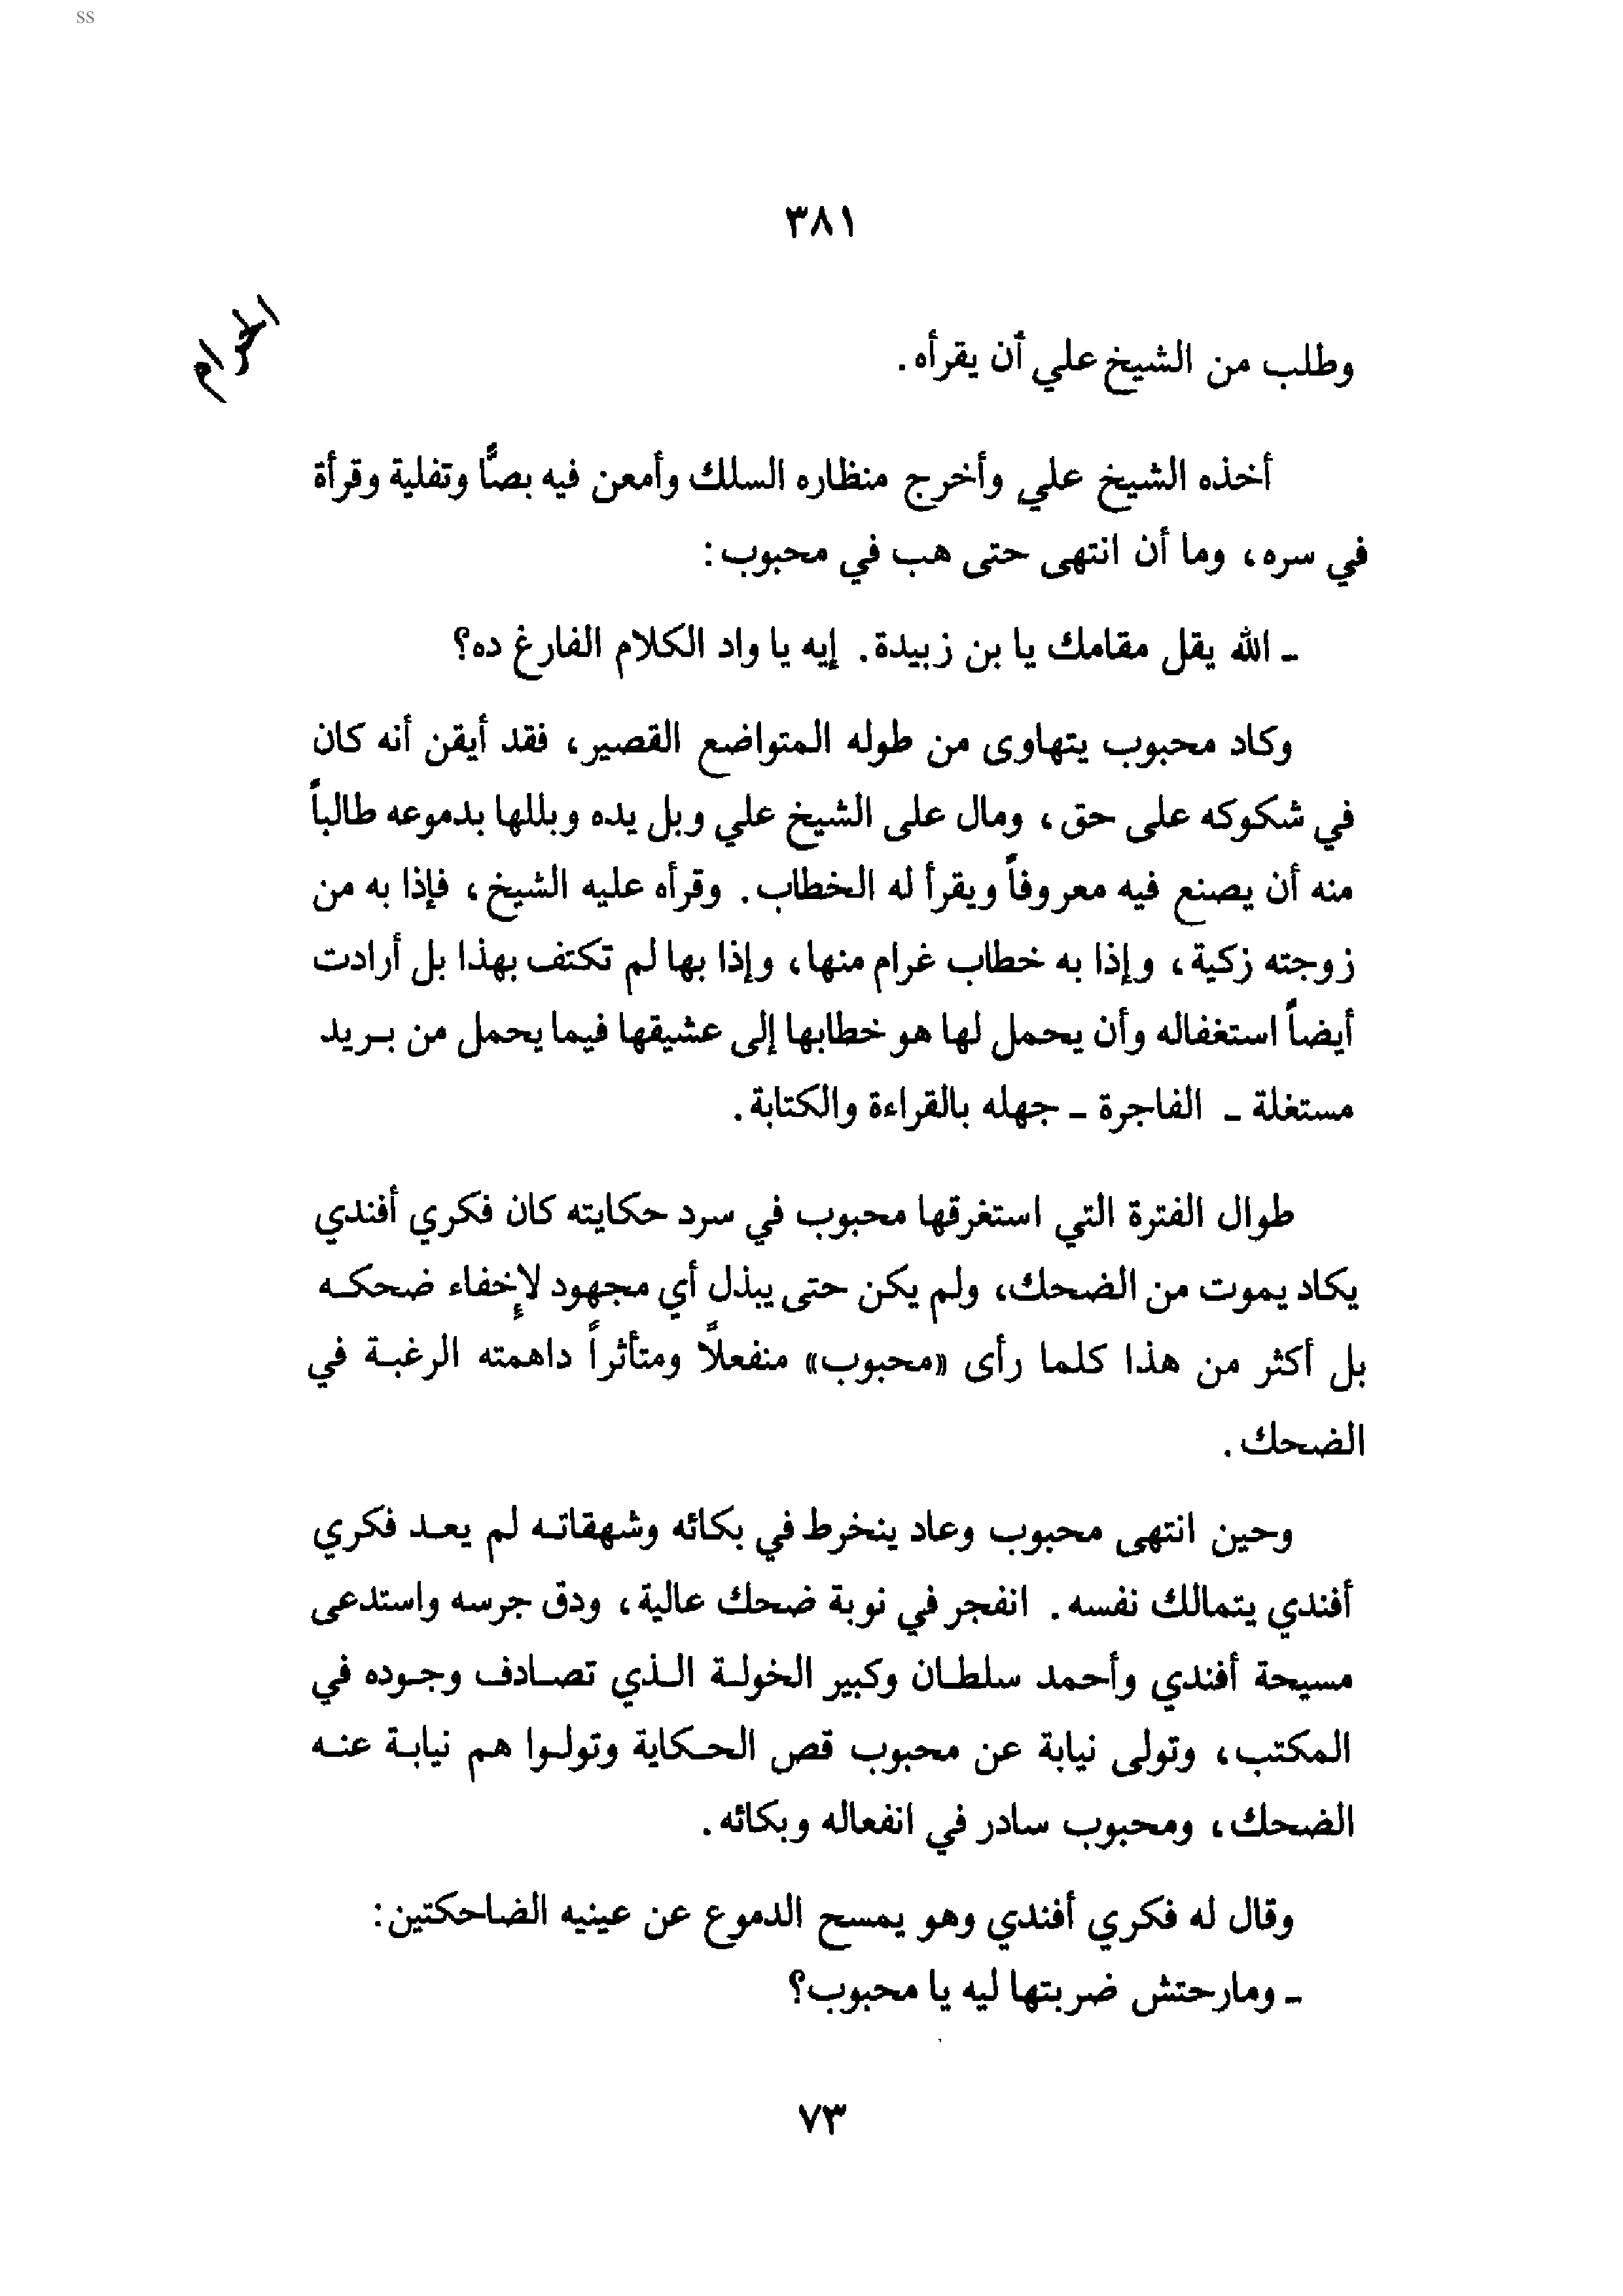 SS
٣٨١
الحرام
وطلب من الشيخ علي أن يقرأه.
أخذه الشيخ علي وأخرج منظاره السلك وأمعن فيه بصًّا وتفلية وقرأة
في سره، وما أن انتهى حتى هب في محبوب:
ـ الله يقل مقامك يا بن زبيدة. إيه يا واد الكلام الفارغ ده؟
وكاد محبوب يتهاوى من طوله المتواضع القصير، فقد أيقن أنه كان
في شكوكه على حق، ومال على الشيخ علي وبل يده وبللها بدموعه طالباً
منه أن يصنع فيه معروفاً ويقرأ له الخطاب. وقرأه عليه الشيخ، فإذا به من
زوجته زكية، وإذا به خطاب غرام منها، وإذا بها لم تكتف بهذا بل أرادت
أيضاً استغفاله وأن يحمل لها هو خطابها إلى عشيقها فيما يحمل من بـريد
مستغلة ـ الفاجرة ـ جهله بالقراءة والكتابة.
طوال الفترة التي استغرقها محبوب في سرد حكايته كان فكري أفندي
يكاد يموت من الضحك، ولم يكن حتى يبذل أي مجهود لإخفاء ضحكـه
بل أكثر من هذا كلما رأى «محبوب» منفعلاً ومتأثراً داهمته الرغبـة في
الضحك.
وحين انتهى محبوب وعاد ينخرط في بكائه وشهقاتـه لم يعـد فكري
أفندي يتمالك نفسه. انفجر في نوبة ضحك عالية، ودق جرسه واستدعى
مسيحة أفندي وأحمد سلطـان وكبير الخولـة الـذي تصـادف وجـوده في
المكتب، وتولى نيابة عن محبوب قص الحـكاية وتولـوا هم نيابـة عنـه
الضحك، ومحبوب سادر في انفعاله وبكائه.
وقال له فكري أفندي وهو يمسح الدموع عن عينيه الضاحكتين:
ـ ومارحتش ضربتها ليه يا محبوب؟
٧٣